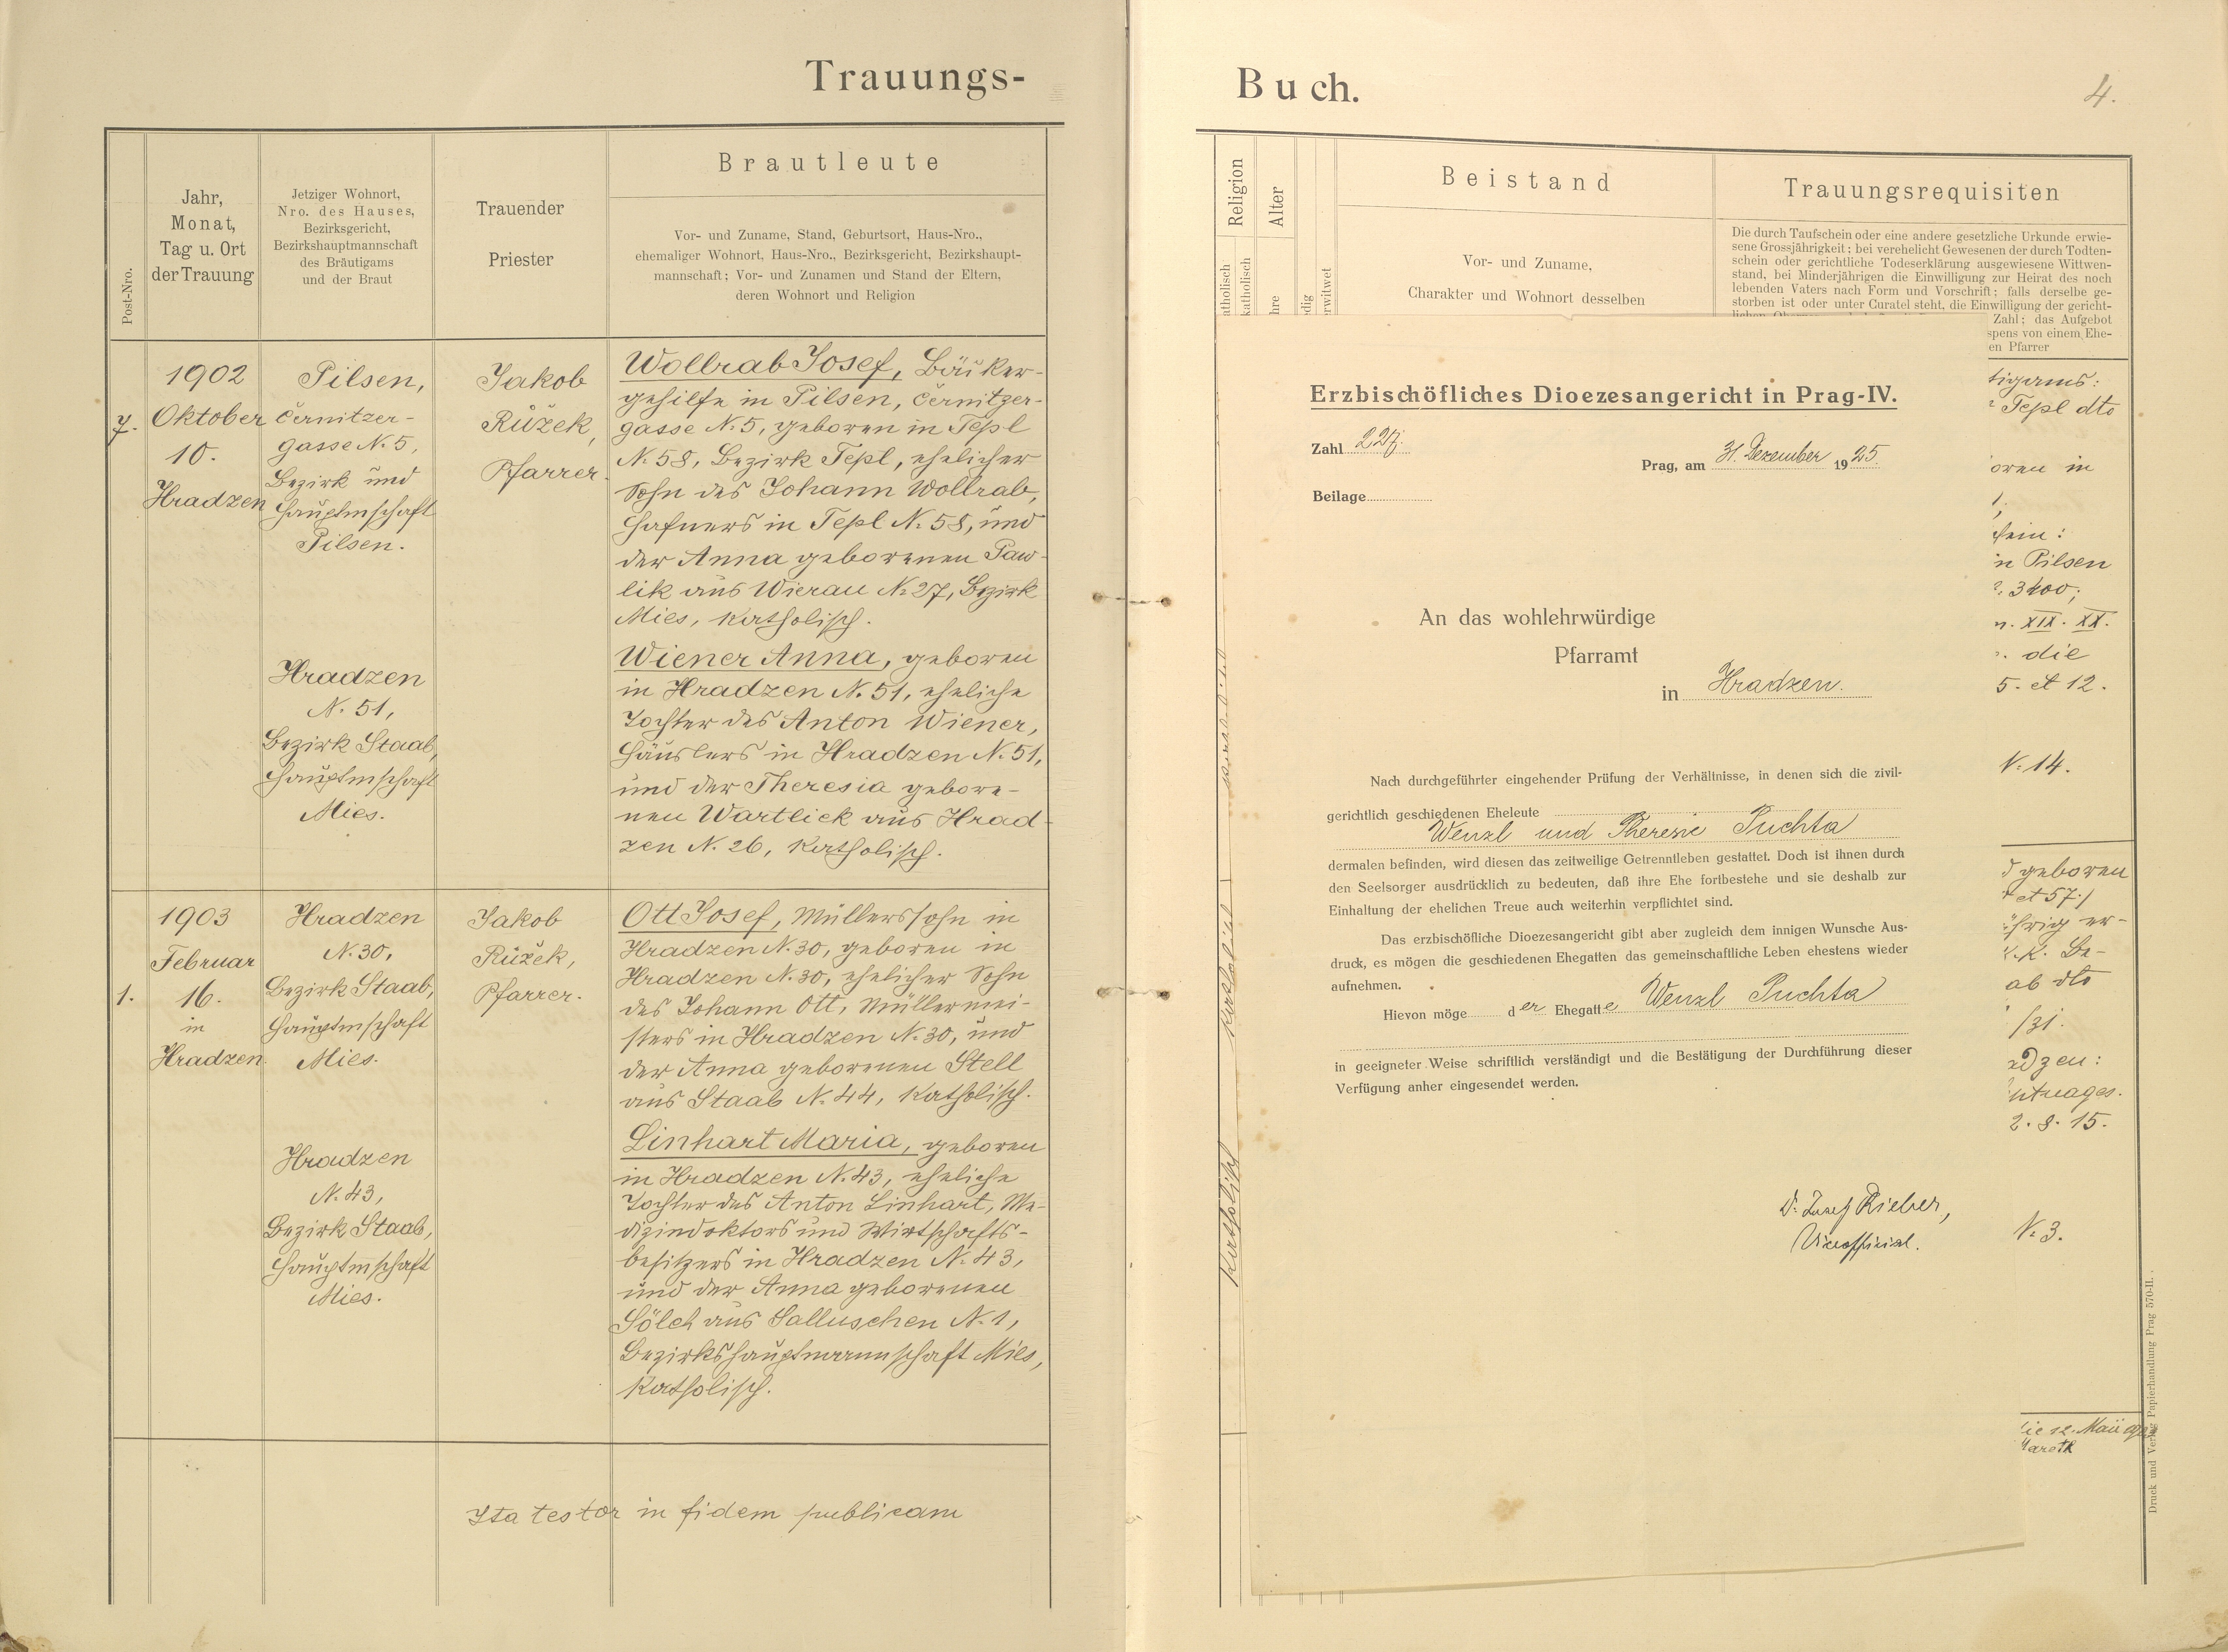 Trauungs-
Post-Nro.
Jahr,
Monat,
Tag u. Ort
der Trauung
Jetziger Wohnort,
Nro. des Hauses,
Bezirksgericht,
Bezirkshauptmannschaft
des Bräutigams
und der Braut
Trauender
Priester
Brautleute
Vor- und Zuname, Stand, Geburtsort, Haus-Nro.,
ehemaliger Wohnort, Haus-Nro., Bezirksgericht, Bezirkshaupt-
mannschaft; Vor- und Zunamen und Stand der Eltern,
deren Wohnort und Religion
7.
1902
Oktober
10.
Hradzen
Pilsen,
Černitzer-
gasse N. 5,
Bezirk und
Hauptmschaft
Pilsen.
Hradzen
N. 51,
Bezirk Staab,
Hauptmschaft
Mies.
Jakob
Růžek,
Pfarrer.
Wollrab Josef, Bäcker-
gehilfe in Pilsen, Černitzer-
gasse N. 5, geboren in Tepl
N. 58, Bezirk Tepl, ehelicher
Sohn des Johann Wollrab,
Hafners in Tepl N. 58, und
der Anna geborenen Paw-
lik aus Wierau N. 27, Bezirk
Mies, katholisch.
Wiener Anna, geboren
in Hradzen N. 51, eheliche
Tochter des Anton Wiener,
Häuslers in Hradzen N. 51,
und der Theresia gebore-
nen Wartlick aus Hrad-
zen N. 26, katholisch.
1.
1903
Februar
16.
in
Hradzen.
Hradzen
N. 30,
Bezirk Staab,
Hauptmschaft
Mies.
Hradzen
N. 43,
Bezirk Staab,
Hauptmschaft
Mies.
Jakob
Růžek,
Pfarrer.
Ott Josef, Müllerssohn in
Hradzen N. 30, geboren in
Hradzen N. 30, ehelicher Sohn
des Johann Ott, Müllermei-
sters in Hradzen N. 30, und
der Anna geborenen Stell
aus Staab N. 44, katholisch.
Linhart Maria, geboren
in Hradzen N. 43, eheliche
Tochter des Anton Linhart, Me-
dizindoktors und Wirtschafts-
besitzers in Hradzen N. 43,
und der Anna geborenen
Sölch aus Salluschen N. 1,
Bezirkshauptmannschaft Mies,
katholisch.
Ita testor in fidem publicam
Buch.
4.
Religion
Alter
atholisch
katholisch
hre
dig
rwitwet
Beistand
Vor- und Zuname,
Charakter und Wohnort desselben
Trauungsrequisiten
Die durch Taufschein oder eine andere gesetzliche Urkunde erwie-
sene Grossjährigkeit; bei verehelicht Gewesenen der durch Todten-
schein oder gerichtliche Todeserklärung ausgewiesene Wittwen-
stand, bei Minderjährigen die Einwilligung zur Heirat des noch
lebenden Vaters nach Form und Vorschrift; falls derselbe ge-
storben ist oder unter Curatel steht, die Einwilligung der gericht-
Zahl; das Aufgebot
spens von einem Ehe-
en Pfarrer
Erzbischöfliches Dioezesangericht in Prag-IV.
Zahl 227.
Prag, am 31. Dezember 1925.
Beilage
An das wohlehrwürdige
Pfarramt
in Hradzen.
Nach durchgeführter eingehender Prüfung der Verhältnisse, in denen sich die zivil-
gerichtlich geschiedenen Eheleute
Wenzl und Theresie Puchta
dermalen befinden, wird diesen das zeitweilige Getrenntleben gestattet. Doch ist ihnen durch
den Seelsorger ausdrücklich zu bedeuten, daß ihre Ehe fortbestehe und sie deshalb zur
Einhaltung der ehelichen Treue auch weiterhin verpflichtet sind.
Das erzbischöfliche Dioezesangericht gibt aber zugleich dem innigen Wunsche Aus-
druck, es mögen die geschiedenen Ehegatten das gemeinschaftliche Leben ehestens wieder
aufnehmen.
Hievon möge der Ehegatte Wenzl Puchta
in geeigneter Weise schriftlich verständigt und die Bestätigung der Durchführung dieser
Verfügung anher eingesendet werden.
Dr. Josef Rieber,
Viceofficial.
katholisch
katholisch
tigams:
Tepl dto
oren in
1.
hein:
in Pilsen
3400;
n. XIX. XX.
die
5. et 12.
N. 14.
geboren
et 57./
ährig er-
k. k. Be-
ab dto
/31.
adzen:
2. 8. 15.
N. 3.
Druck und Verlag Papierhandlung Prag 570-II.